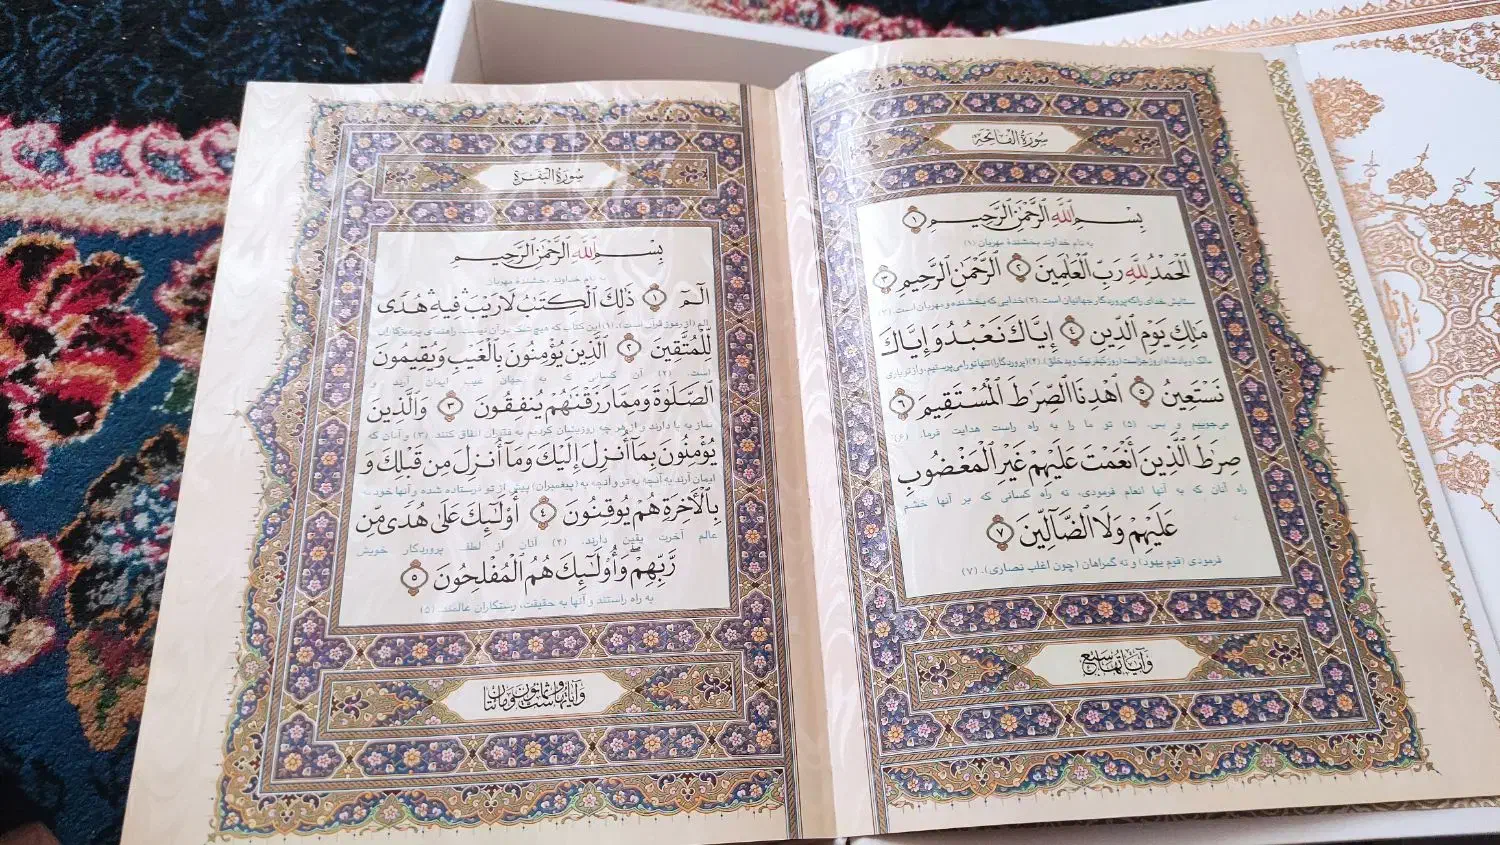 سُورَةُ الْفَاتِحَةِ
بِسْمِ اللَّهِ الرَّحْمَٰنِ الرَّحِيمِ ١
به نام خداوند بخشندهٔ مهربان (۱)
الْحَمْدُ لِلَّهِ رَبِّ الْعَالَمِينَ ٢ الرَّحْمَٰنِ الرَّحِيمِ ٣
ستایش خدای را که پروردگار جهانیان است. (۲) خدایی که بخشنده و مهربان است. (۳)
مَالِكِ يَوْمِ الدِّينِ ٤ إِيَّاكَ نَعْبُدُ وَإِيَّاكَ
مالک و پادشاه روز جزاست (روز کیفر نیک و بد خلق). (۴) (پروردگارا) تنها تو را می‌پرستیم، و از تو یاری
نَسْتَعِينُ ٥ اهْدِنَا الصِّرَاطَ الْمُسْتَقِيمَ ٦
می‌جوییم و بس. (۵) تو ما را به راه راست هدایت فرما. (۶)
صِرَاطَ الَّذِينَ أَنْعَمْتَ عَلَيْهِمْ غَيْرِ الْمَغْضُوبِ
راه آنان که به آنها انعام فرمودی، نه راه کسانی که بر آنها خشم
عَلَيْهِمْ وَلَا الضَّالِّينَ ٧
فرمودی (قوم یهود) و نه گمراهان (چون اغلب نصاری). (۷)
وَآيَاتُهَا سَبْعٌ
سُورَةُ الْبَقَرَةِ
بِسْمِ اللَّهِ الرَّحْمَٰنِ الرَّحِيمِ
به نام خداوند بخشندهٔ مهربان
الم ١ ذَٰلِكَ الْكِتَابُ لَا رَيْبَ فِيهِ هُدًى
الم (از رموز قرآن است). (۱) این کتاب که هیچ شک در آن نیست، راهنمای پرهیزگاران
لِلْمُتَّقِينَ ٢ الَّذِينَ يُؤْمِنُونَ بِالْغَيْبِ وَيُقِيمُونَ
است. (۲) آن کسانی که به جهان غیب ایمان آرند و
الصَّلَاةَ وَمِمَّا رَزَقْنَاهُمْ يُنْفِقُونَ ٣ وَالَّذِينَ
نماز به پا دارند و از هر چه روزیشان کردیم به فقیران انفاق کنند. (۳) و آنان که
يُؤْمِنُونَ بِمَا أُنْزِلَ إِلَيْكَ وَمَا أُنْزِلَ مِنْ قَبْلِكَ وَ
ایمان آرند به آنچه به تو و آنچه به (پیغمبران) پیش از تو فرستاده شده و آنها خود به
بِالْآخِرَةِ هُمْ يُوقِنُونَ ٤ أُولَٰئِكَ عَلَىٰ هُدًى مِنْ
عالم آخرت یقین دارند. (۴) آنان از لطف پروردگار خویش
رَبِّهِمْ وَأُولَٰئِكَ هُمُ الْمُفْلِحُونَ ٥
به راه راستند و آنها به حقیقت، رستگاران عالمند. (۵)
وَآيَاتُهَا سِتٌّ وَثَمَانُونَ وَمِائَتَانِ